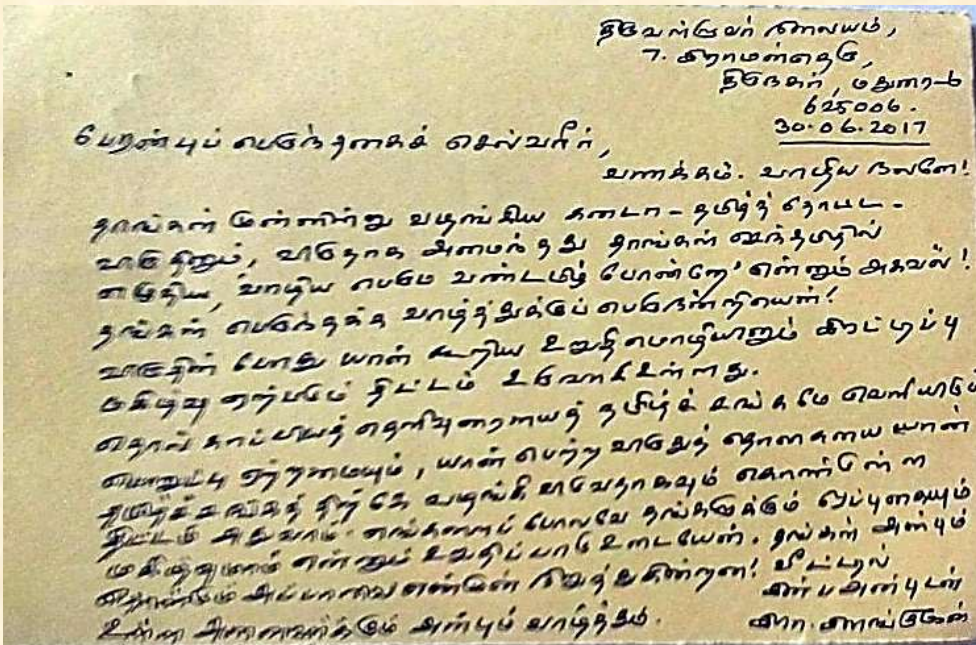 திருவள்ளுவர் நிலையம்,
7. இராமன்தெரு,
திருநகர், மதுரை-6
625006.
30-06-2017
பேரன்புப் பெருந்தகைச் செல்வரீர்,
வணக்கம். வாழிய நலனே!
தாங்கள் முன்னின்று வழங்கிய கனடா - தமிழ்த் தோட்ட -
விருதினும், விருதாக அமைந்தது தாங்கள்
எழுதிய, 'வாழிய பெரும வண்டமிழ் போன்றே' என்னும் அகவல்!
தங்கள் பெருந்தக்க வாழ்த்துக்குப் பெருநன்றியென்!
விருதின் போது யான் கூறிய உறுதிமொழியினும் இரட்டிப்பு
மகிழ்வு ஏற்படும் திட்டம் உருவாகி உள்ளது.
தொல்காப்பியத் தெளிவுரையைத் தமிழ்ச் சங்கமே வெளியிடும்
பொறுப்பு ஏற்றமையும், யான் பெற்ற விருதுத் தொகையை யான்
சங்கத்திற்கே வழங்கி விடுவதாகவும் கொண்டுள்ள
திட்டம் அதுவாம். எங்களைப் போலவே தங்களுக்கும் ஒப்புகையும்
மகிழ்வுமாம் என்னும் உறுதிப்பாடு உடையேன். தங்கள் அன்பும்
தொண்டும் என்னுள் நிறுத்துகின்றன! வீட்டில்
இன்ப அன்புடன்
உள்ள அனைவர்க்கும் அன்பும் வாழ்த்தும்.
இரா. இளங்குமரன்